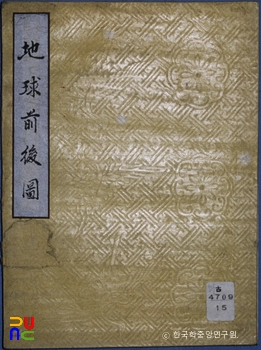 地球前後圖
古
4709
15
© 한국학중앙연구원